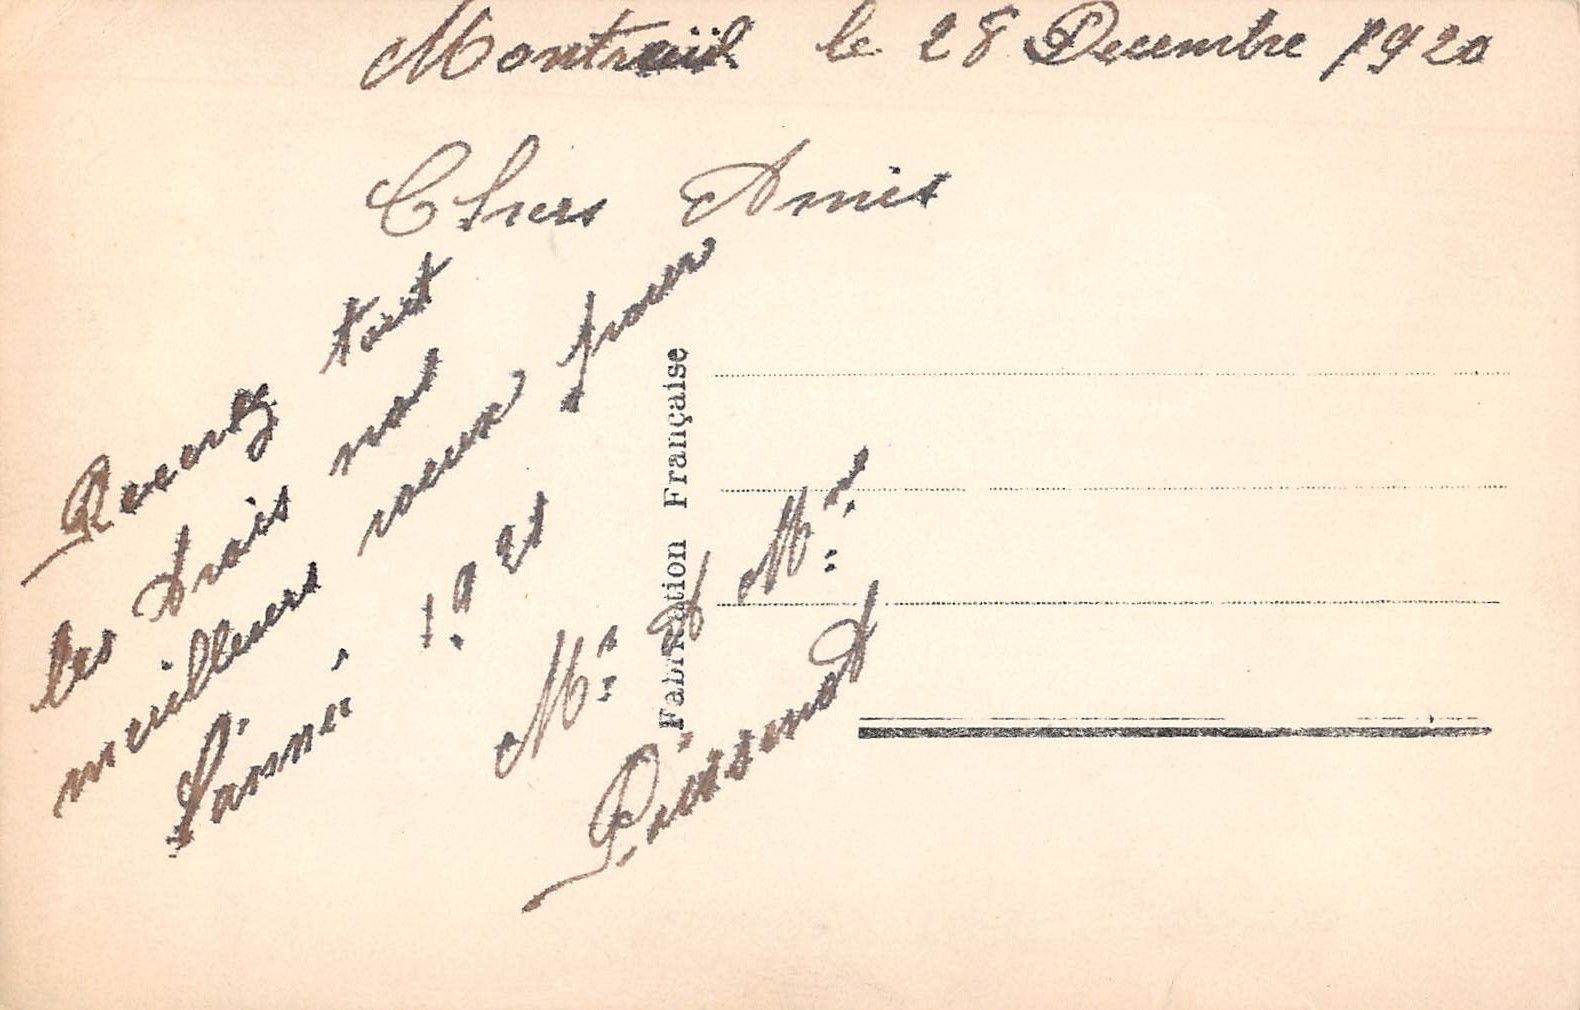 Montreuil le 28 Decembre 1920
Chers Amis
Recevez tout
les trois nos
meilleurs voeux pour
l'année 1921
Mr & Mme
Fabrication Française